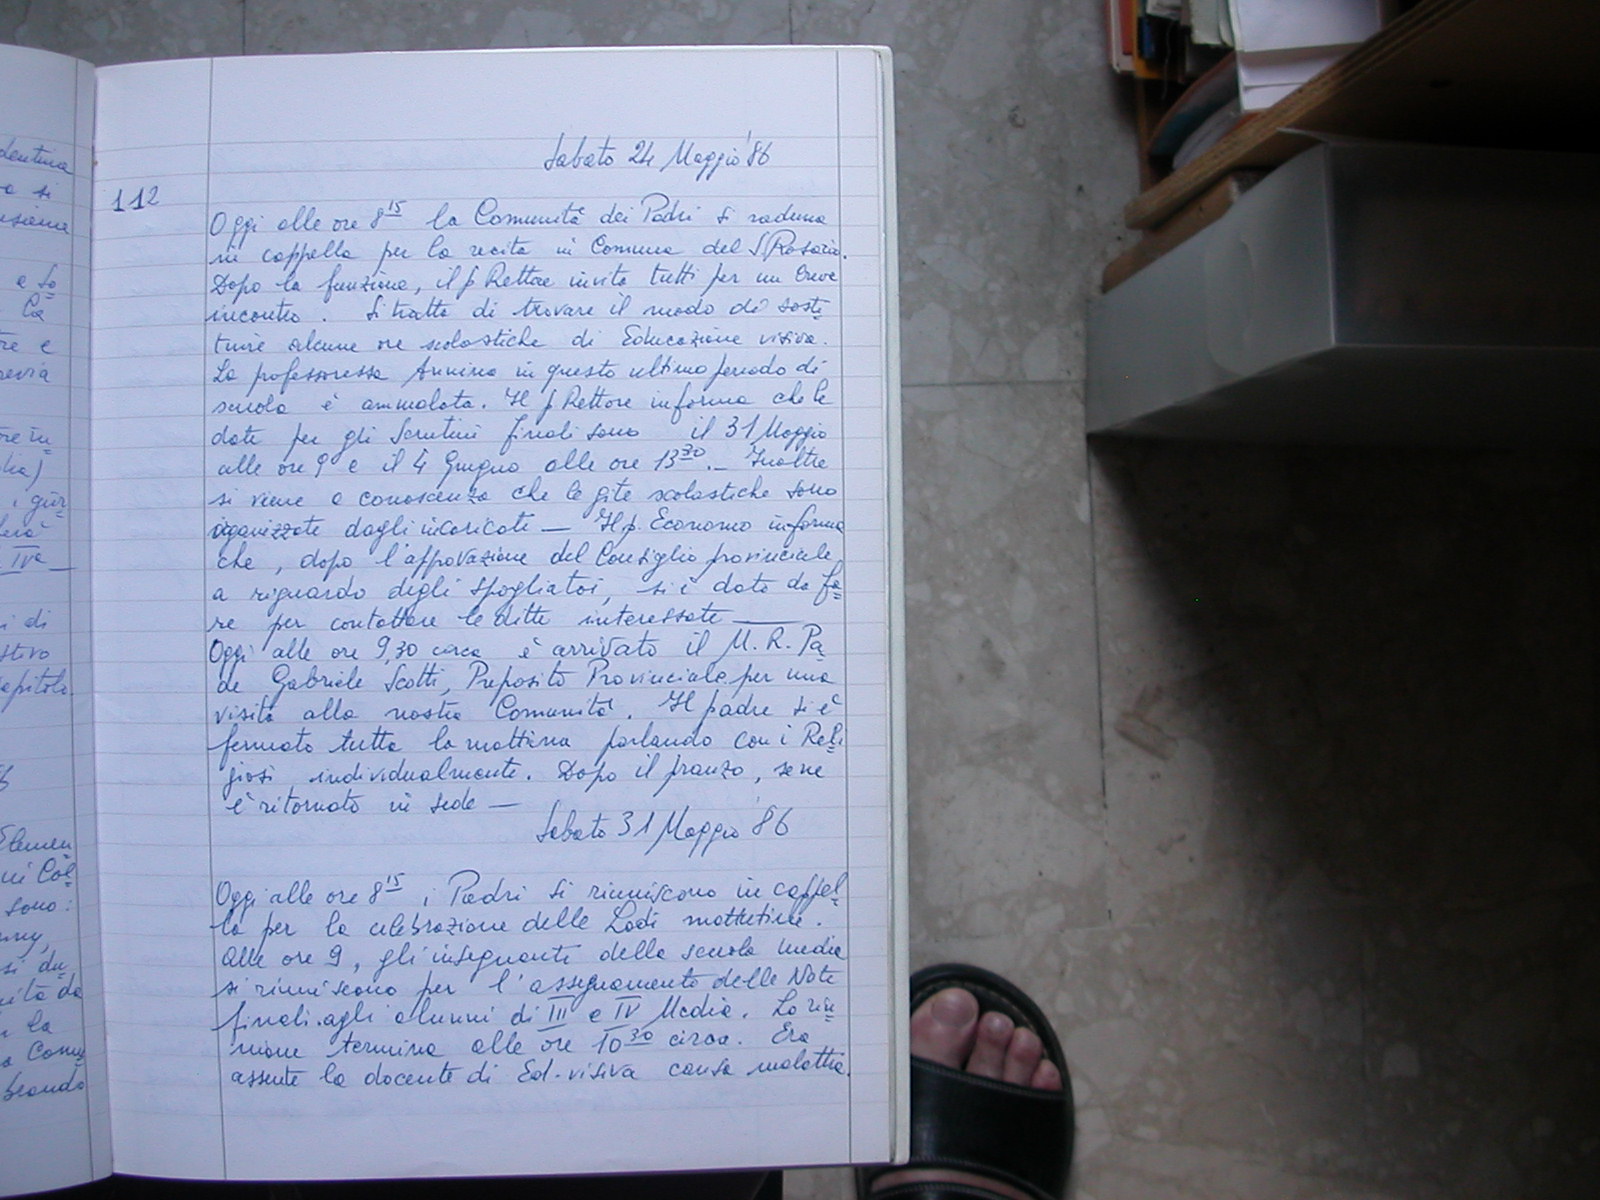 dentina
a si
e So
la
re e
evia
lia)
IVa
i di
stivo
apitolo
Elemen
ni Col
sono:
si du
ità da
n la
a Comu
brando
Sabato 24 Maggio '86
112
Oggi alle ore 8 15 la Comunità dei Padri si raduna
in cappella per la recita in Comune del S. Rosario.
Dopo la funzione, il p Rettore invita tutti per un breve
incontro. Si tratta di trovare il modo di sosti
tuire alcune ore scolastiche di Educazione visiva.
La professoressa Annino in questo ultimo periodo di
scuola è ammalata. Il p Rettore informa che le
date per gli Scrutini finali sono il 31 Maggio
alle ore 9 e il 4 Giugno alle ore 13 30. – Inoltre
si viene a conoscenza che le gite scolastiche sono
organizzate dagli incaricati — Il p. Economo informa
che, dopo l'approvazione del Consiglio provinciale
a riguardo degli spogliatoi, si è dato da fa=
re per contattare le ditte interessate ———
Oggi alle ore 9,30 circa è arrivato il M. R. Pa=
de Gabriele Scotti, Preposito Provinciale per una
visita alla nostra Comunità. Il padre si è
fermato tutta la mattina parlando con i Reli=
giosi individualmente. Dopo il pranzo, se ne
è ritornato in sede —
Sabato 31 Maggio '86
Oggi alle ore 8 15 i Padri si riuniscono in cappel=
la per la celebrazione delle Lodi mattutine.
Alle ore 9, gli insegnanti della scuola media
si riuniscono per l'assegnamento delle Note
finali agli alunni di III e IV Media. La riu=
nione termina alle ore 10 30 circa. Era
assente la docente di Ed. visiva causa malattia.